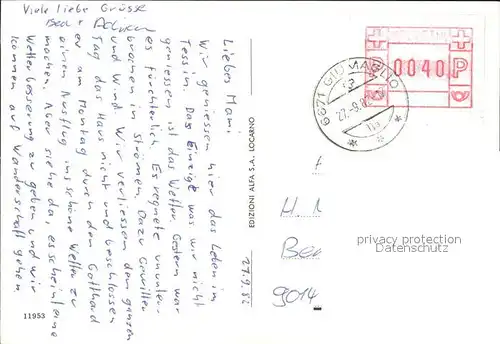 Viele liebe Grüsse
Beat +
Liebes Mami.
Wir geniessen hier das Leben im
Tessin. Das Einzige was wir nicht
geniessen ist das Wetter. Gestern war
es fürchterlich. Es regnete ununter-
brochen in Strömen. Dazu Gewitter
und Wind. Wir verliessen den ganzen
Tag das Haus nicht und beschlossen
am Montag durch den Gotthard
einen Ausflug ins schöne Wetter zu
machen. Aber siehe da, es scheint eine
Wetterbesserung zu geben und wir
kommen auf Wanderschaft gehen
11953
EDIZIONI ALFA S.A. LOCARNO
27.9.82
6671 GIUMAGLIO
27.-9.8
0040
P
H
Be
9014
privacy protection
Datenschutz